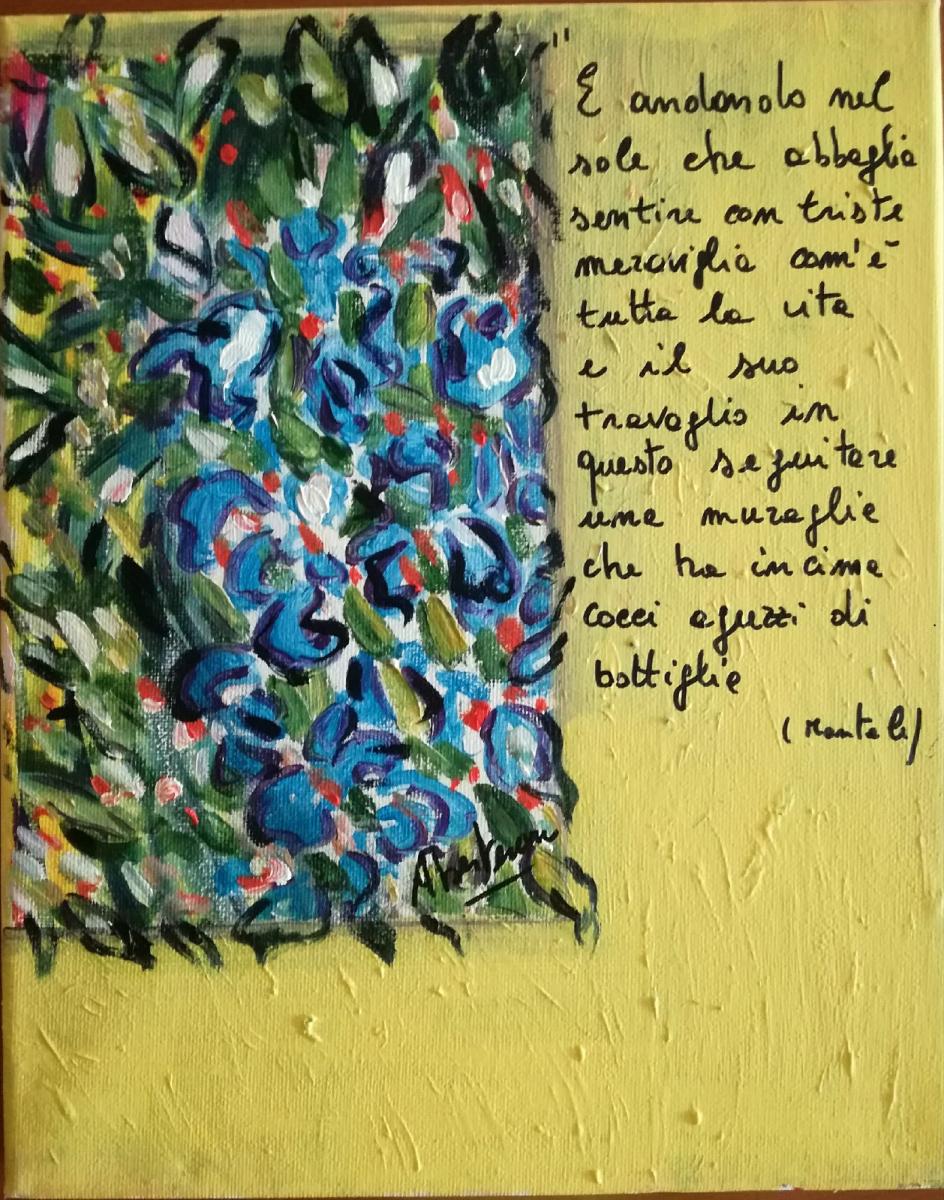 "E andando nel
sole che abbaglia
sentire con triste
meraviglia com'è
tutta la vita
e il suo
travaglio in
questo seguitare
una muraglia
che ha in cima
cocci aguzzi di
bottiglia
(Montale)